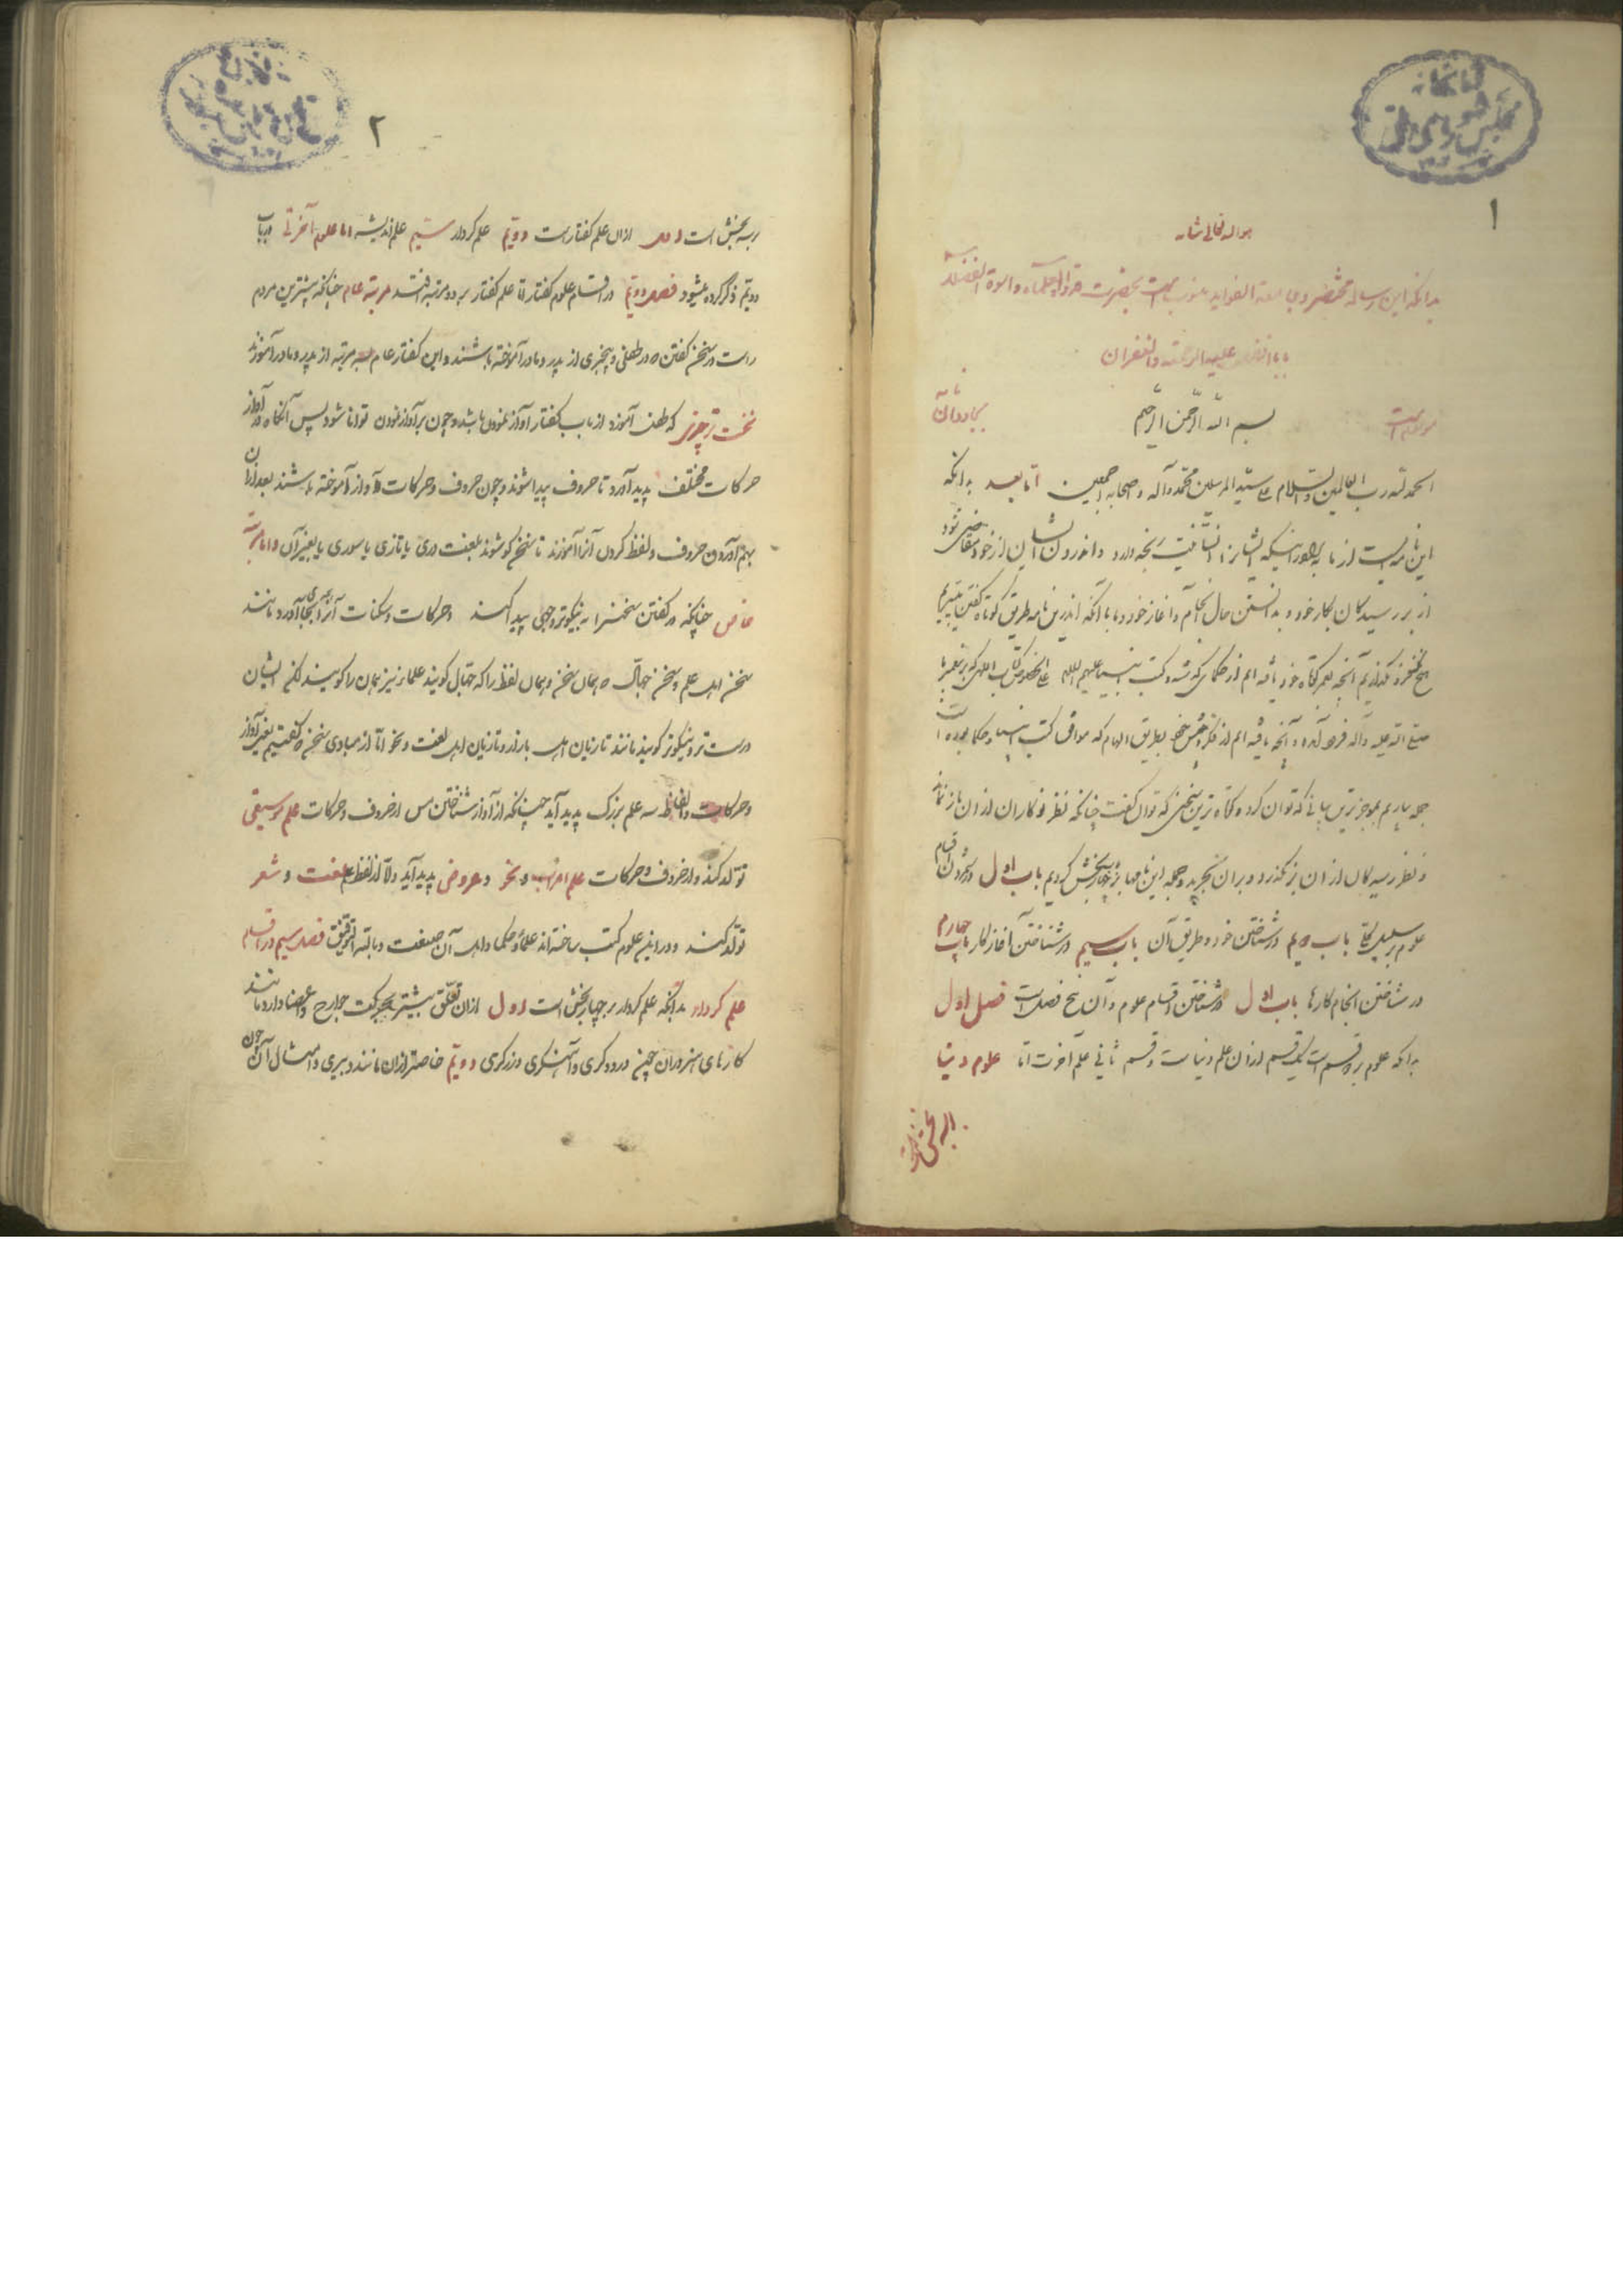 کتابخانه
مجلس شورای ملی
۱
هو الله تعالی شانه
بدانکه این رساله مختصر و جامعة الفواید منسوب است بحضرت قدوة الحکماء و اسوة الفضلاء
بابا افضل علیه الرحمة و الغفران
بسم الله الرحمن الرحیم
الحمد لله رب العالمین و السلام علی سید المرسلین محمد و آله و اصحابه اجمعین اما بعد بدانکه
این نامه ایست از ما
از بر رسیدگان بکار خود و بدانستن حال انجام و آغاز خود و ما با آنکه اندرین نامه طریق کوتاه گفتن
هیچ نگذاریم آنچه یافته ایم از حکمای گذشته و کتب انبیا علیهم السلام
صلی الله علیه و آله فرود آمده و آنچه یافته ایم از فکر بطریق الهام که موافق کتب انبیا و حکما بوده است
جمله یاریم بموجزترین بیانی که توان کرد و کوتاه ترین سخنی که توان گفت چنانکه نظر فکاران از ان باز نماند
و نظر رسیدگان از ان بر نگذرد و جمله این نامه را بر چهار بخش کردیم باب اول در شمردن اقسام
علوم بر سبیل باب دویم در شناختن خود و طریق آن باب سیم در شناختن آغاز کار باب چهارم
در شناختن انجام کارها باب اول در شناختن اقسام علوم و آن پنج فصل است فصل اول
بدانکه علوم بر دو قسم است یک قسم از ان علم دنیاست و قسم ثانی علم آخرت اما علوم دنیا
۲
بر سه بخش است اول از ان علم گفتار است دویم علم کردار سیم علم اندیشه اما علوم آخرتی در باب
دویم ذکر کرده میشود فصل دویم در اقسام علوم گفتار اما علم گفتار بر دو مرتبه افتد مرتبه عام چنانکه بیشترین مردم
راست در سخن گفتن که در طفلی و بیخبری از پدر و مادر آموخته باشند و این گفتار عام بسه مرتبه از پدر و مادر آموزند
نخست ترچیزی که طفل آموزد از باب گفتار آواز نمودن باشد و چون بر آواز نمودن توانا شود پس آنگاه در آواز
حرکات مختلف پدید آورد تا حروف پیدا شوند و چون حروف و حرکات آواز آموخته باشند بعد از ان
بهم آوردن حروف و لفظ کردن آنرا آموزند تا سخن گو شوند بلغت دری یا تازی یا سوری یا بغیر آن و اما مرتبه
خاص چنانکه در گفتن سخن را به نیکوتر وجهی پیدا کنند و حرکات و سکنات آنرا بجا آورد مانند
سخن اهل علم و سخن جهال که همان سخن و همان لفظ را که جهال گویند علما نیز همان را گویند لکن ایشان
درست تر و نیکوتر گویند مانند تازیان اهل بازار و تازیان اهل لغت و نحو اما از مبادی سخن که گفتیم یعنی آواز
و حرکات و الفاظ سه علم بزرگ پدید آید چنانکه از آواز شناختن پس از حروف و حرکات علم موسیقی
تولد کند و از حروف و حرکات علم اعراب و نحو و عروض پدید آید و اما از لفظ علم لغت و شعر
تولد کند و در این علوم کتب ساخته اند علما و حکما و اهل آن صنعت و بالله التوفیق فصل سیم در اقسام
علم کردار بدانکه علم کردار بر چهار بخش است اول از ان تعلق بیشتر بحرکت جوارح و اعضا دارد مانند
کارهای هنروران چون درودگری و آهنگری و زرگری دویم خاصتر از ان مانند دبیری و امثال آن چون